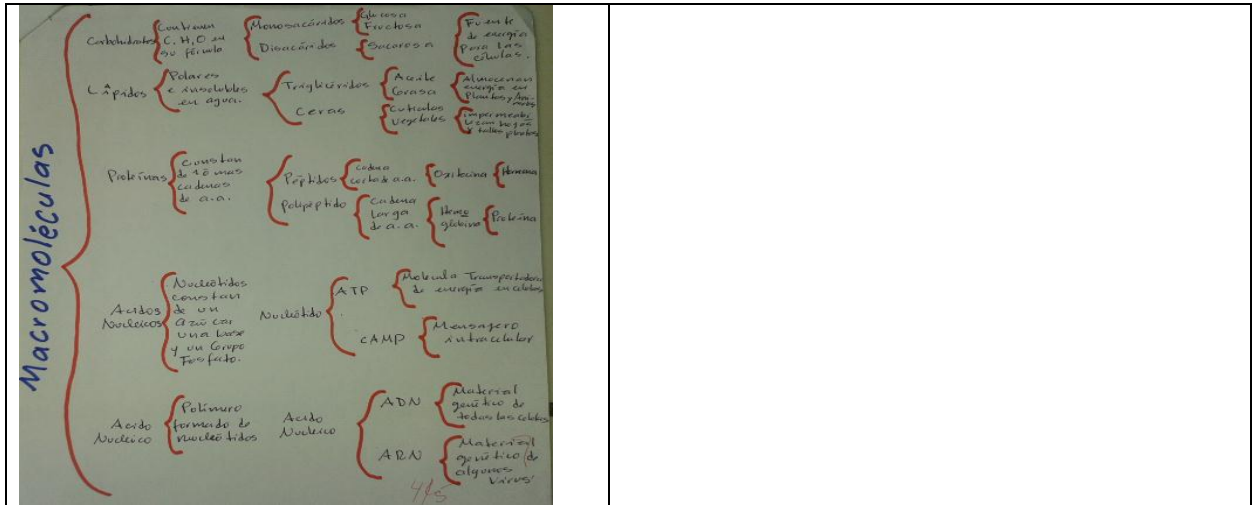 Macromoléculas
Carbohidratos
Contienen
C, H, O en
su fórmula
Monosacáridos
Glucosa
Fructosa
Disacáridos
Sacarosa
Fuente
de energía
para las
células.
Lípidos
Polares
e insolubles
en agua.
Triglicéridos
Aceite
Grasa
Almacenan
energía en
Plantas y
Ceras
Cutículas
Vegetales
Proteínas
Constan
de 1 ó mas
cadenas
de a.a.
Péptidos
cadena
corta de a.a.
Oxitocina
Hormona
Polipéptido
Cadena
larga
de a.a.
Hemo
globina
Proteína
Acidos
Nucleicos
Nucleótidos
constan
de un
azúcar
una base
y un Grupo
Fosfato.
Nucleótido
ATP
Molecula Transportadora
de energía en celulas
cAMP
Mensajero
intracelular
Acido
Nucleico
Polímero
formado de
nucleótidos
Acido
Nucleico
ADN
Material
genético de
todas las celulas
ARN
Material
genético de
algunos
Virus